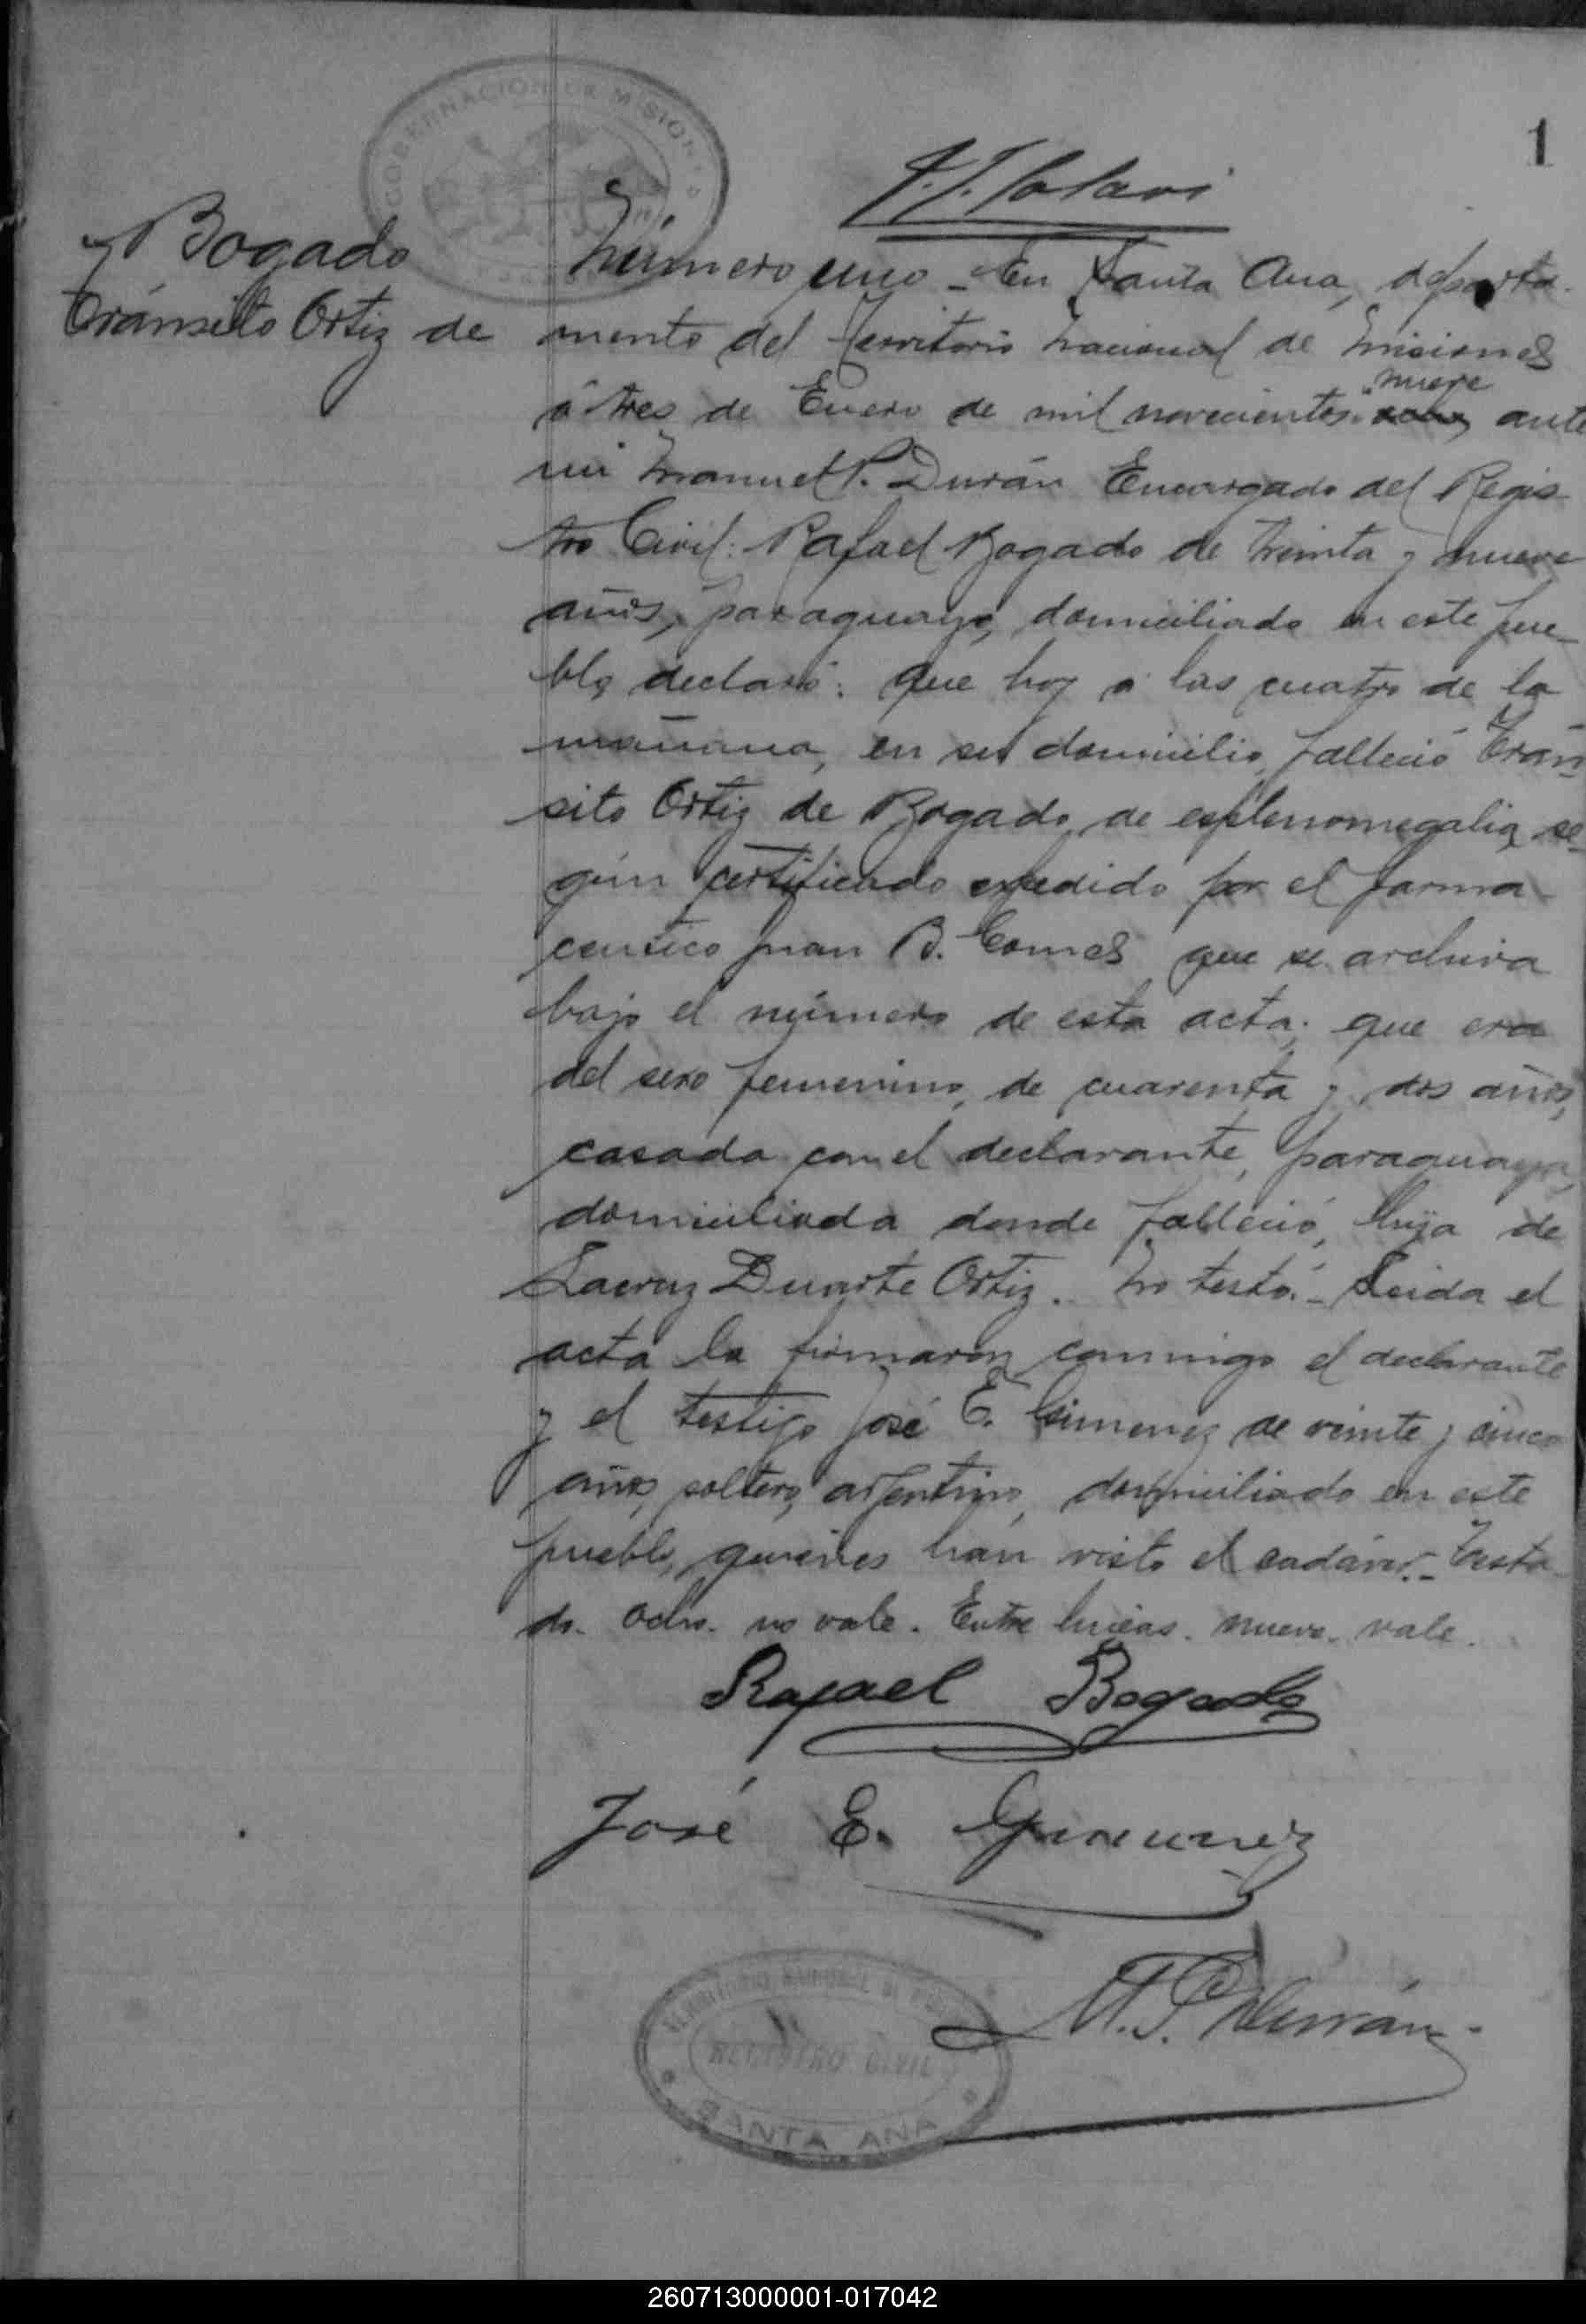 GOBERNACION DE MISIONES
1
Bogado
Tránsito Ortiz de
Número uno - En Santa Ana, departa-
mento del Territorio Nacional de Misiones
á tres de Enero de mil novecientos nueve ocho, ante
mi Manuel P. Durán Encargado del Regis-
tro Civil: Rafael Bogado de treinta y nueve
años, paraguayo, domiciliado en este pue-
blo, declaró: que hoy á las cuatro de la
mañana, en su domicilio, falleció Trán-
sito Ortiz de Bogado, de esplenomegalia, se-
gún certificado expedido por el farma-
ceutico Juan B. Gomes que se archiva
bajo el número de esta acta; que era
del sexo femenino, de cuarenta y dos años,
casada con el declarante, paraguaya,
domiciliada donde falleció, hija de
Lacruz Duarte Ortiz. No testó. - Leida el
acta la firmaron conmigo el declarante
y el testigo José E. Gimenez de veinte y cinco
años, soltero, argentino, domiciliado en este
pueblo, quienes han visto el cadáver. - Testa-
do. ocho. no vale. Entre lineas. nueve. vale.
Rafael Bogado
José E. Gimenez
M. P. Durán
TERRITORIO NACIONAL DE
REGISTRO CIVIL
SANTA ANA
260713000001-017042